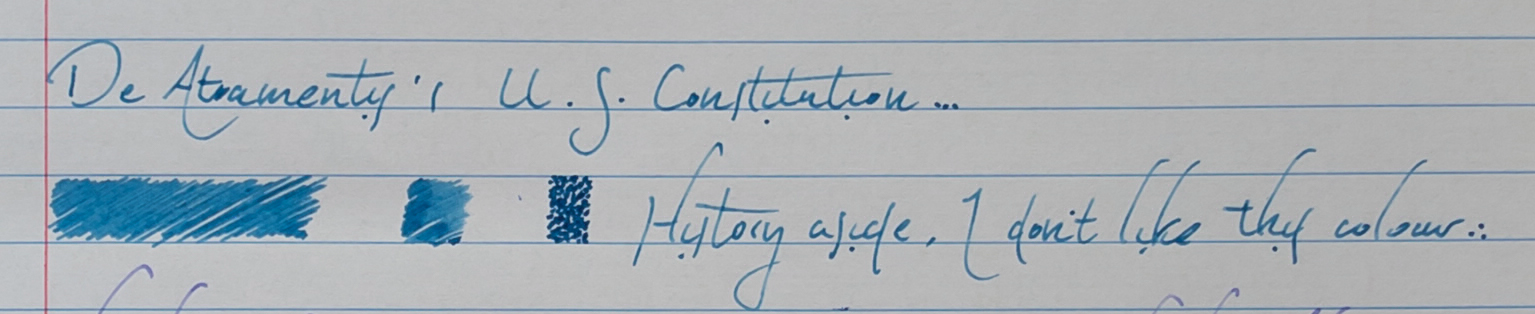 De Atramentis's U.S. Constitution...
History aside, I don't like this colour...